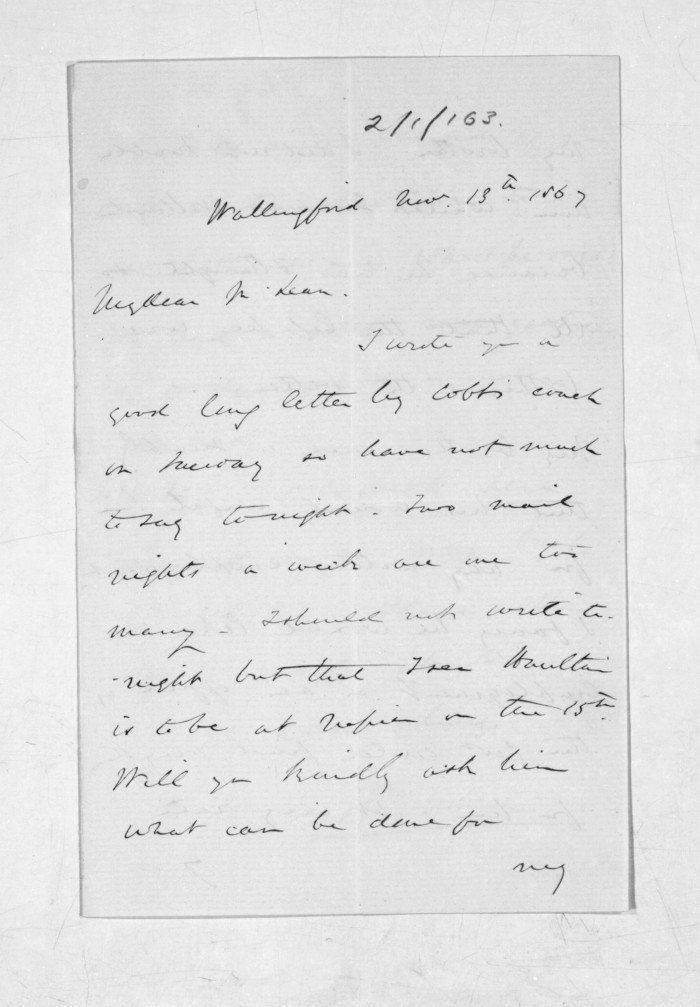 2/1/163.
Wallingford Nov. 13th 1867
My dear McLean.
I wrote you a
good long letter by Cobb's coach
on Tuesday so have not much
to say to-night. Two mail
nights a week are one too
many - I should not write to-
-night but that I see Haultain
is to be at Napier on the 15th
Will you kindly ask him
what can be done for
my